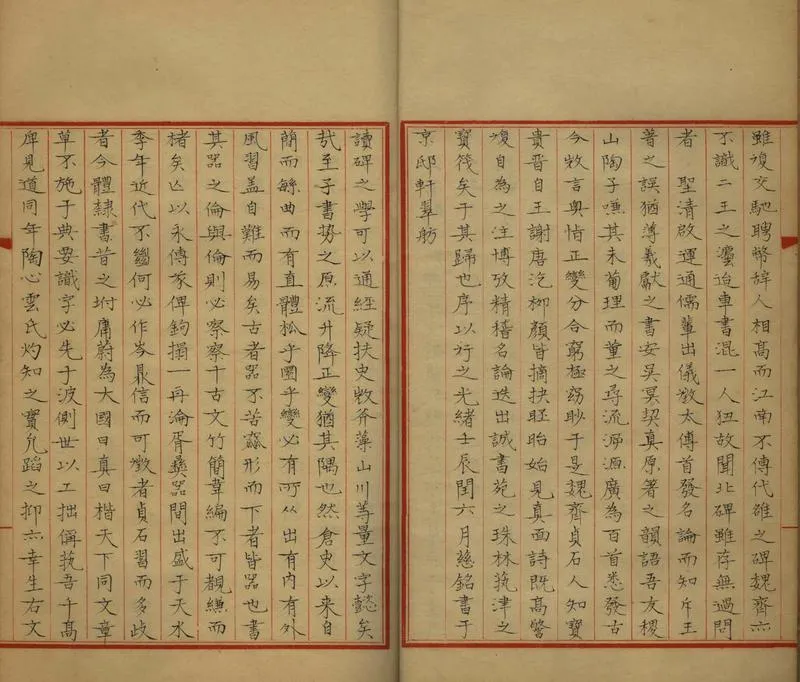 雖復交馳聘幣辭人相高而江南不傳代雒之碑魏齊亦
不識二王之瀋迨車書混一人狃故聞北碑雖存無過問
者聖清啟運通儒輩出儀徵太傅首發名論而知斥王
著之誤猶薄羲獻之書安吳冥契真原著之韻語吾友稷
山陶子嗛其未葡理而董之尋流溯源廣為百首悉發古
今攷言奧恉正變分合窮極窈眇于是魏齊貞石人知寶
貴晋自王謝唐汔柳顔皆摘抉胚胎始見真面詩既高警
復自為之注博攷精稽名論迭出誠書苑之珠林埶津之
寶筏矣于其歸也序以行之光緒士辰閏六月慈銘書于
京邸軒翠舫
讀碑之學可以通經疑扶史敚斧藻山川等量文字懿矣
哉至于書埶之原流升降正變猶其隅也然倉史以來自
簡而緐曲而有直體松乎圉乎變必有所从出有内有外
風習盖自難而易矣古者器不苦窳形而下者皆器也書
其器之倫與倫則必察察千古文竹簡韋編不可覩縑而
楮矣亾以永傳冢碑鉤搨一再淪胥彝器間出盛于天水
季年近代不鬭何必作岑鼎信而可徵者貞石習而多歧
者今體隸書昔之坿庸蔚為大國曰真曰楷天下同文章
草不施于典要識字必先于波側世以工拙偁埶吾千高
庳見道同年陶心雲氏灼知之寶允蹈之抑亦幸生右文